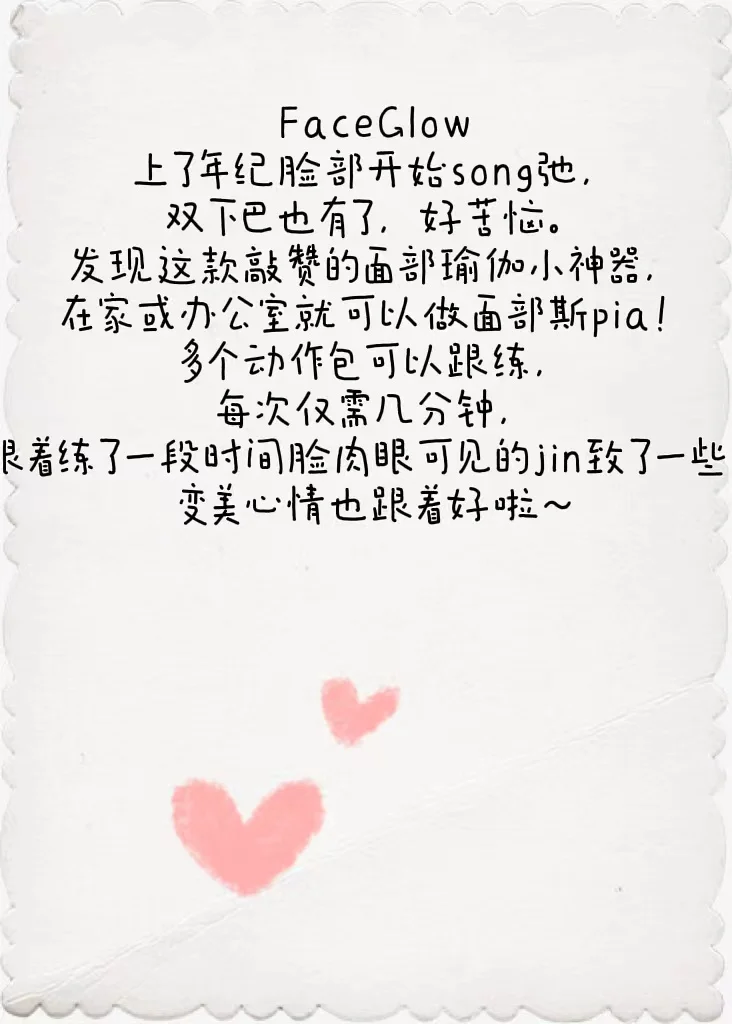 FaceGlow
上了年纪脸部开始song弛，
双下巴也有了，好苦恼。
发现这款敲赞的面部瑜伽小神器，
在家或办公室就可以做面部斯pia！
多个动作包可以跟练，
每次仅需几分钟，
跟着练了一段时间脸肉眼可见的jin致了一些
变美心情也跟着好啦～